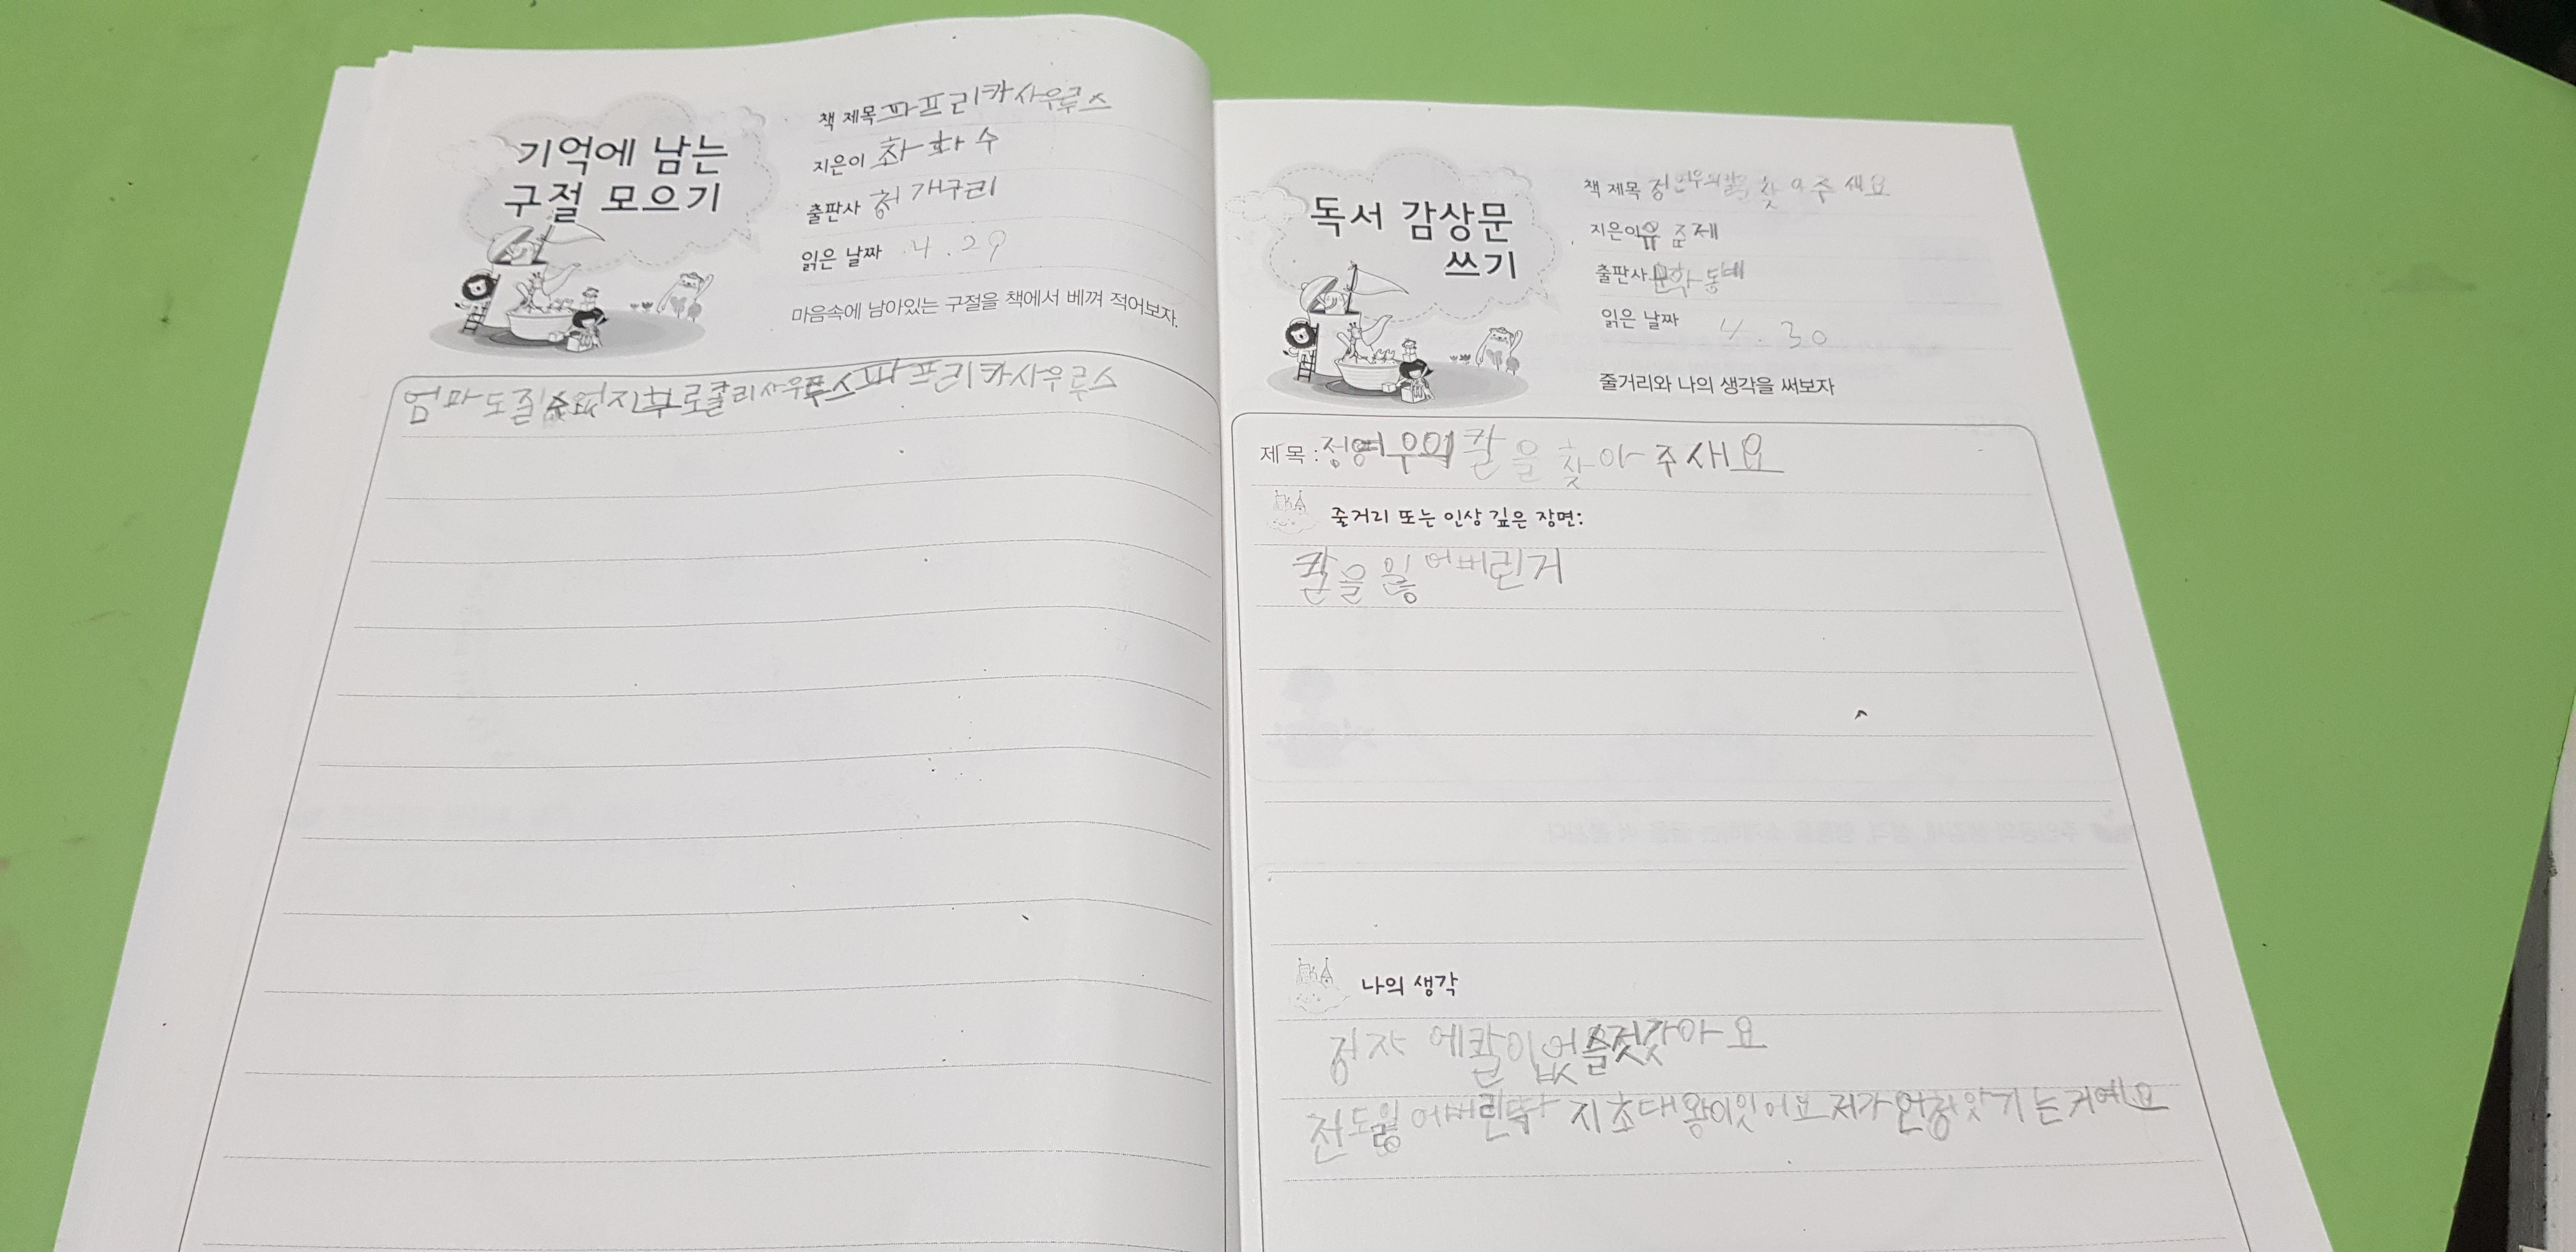 기억에 남는
구절 모으기
책 제목 파프리카사우루스
지은이 화수
출판사 청개구리
읽은 날짜 4.29
마음속에 남아있는 구절을 책에서 베껴 적어보자.
엄마도 질 수 없지 부로콜리사우루스 파프리카사우루스
독서 감상문
쓰기
책 제목 정연우의칼을 찾아주세요
지은이 유준재
출판사 문학동네
읽은 날짜 4.30
줄거리와 나의 생각을 써보자
제목 : 정연우의칼을 찾아주새요
줄거리 또는 인상 깊은 장면:
칼을 잃어버린거
나의 생각
에칼이없슬젓갓아요
어버린 지초대왕이잇어요 저가